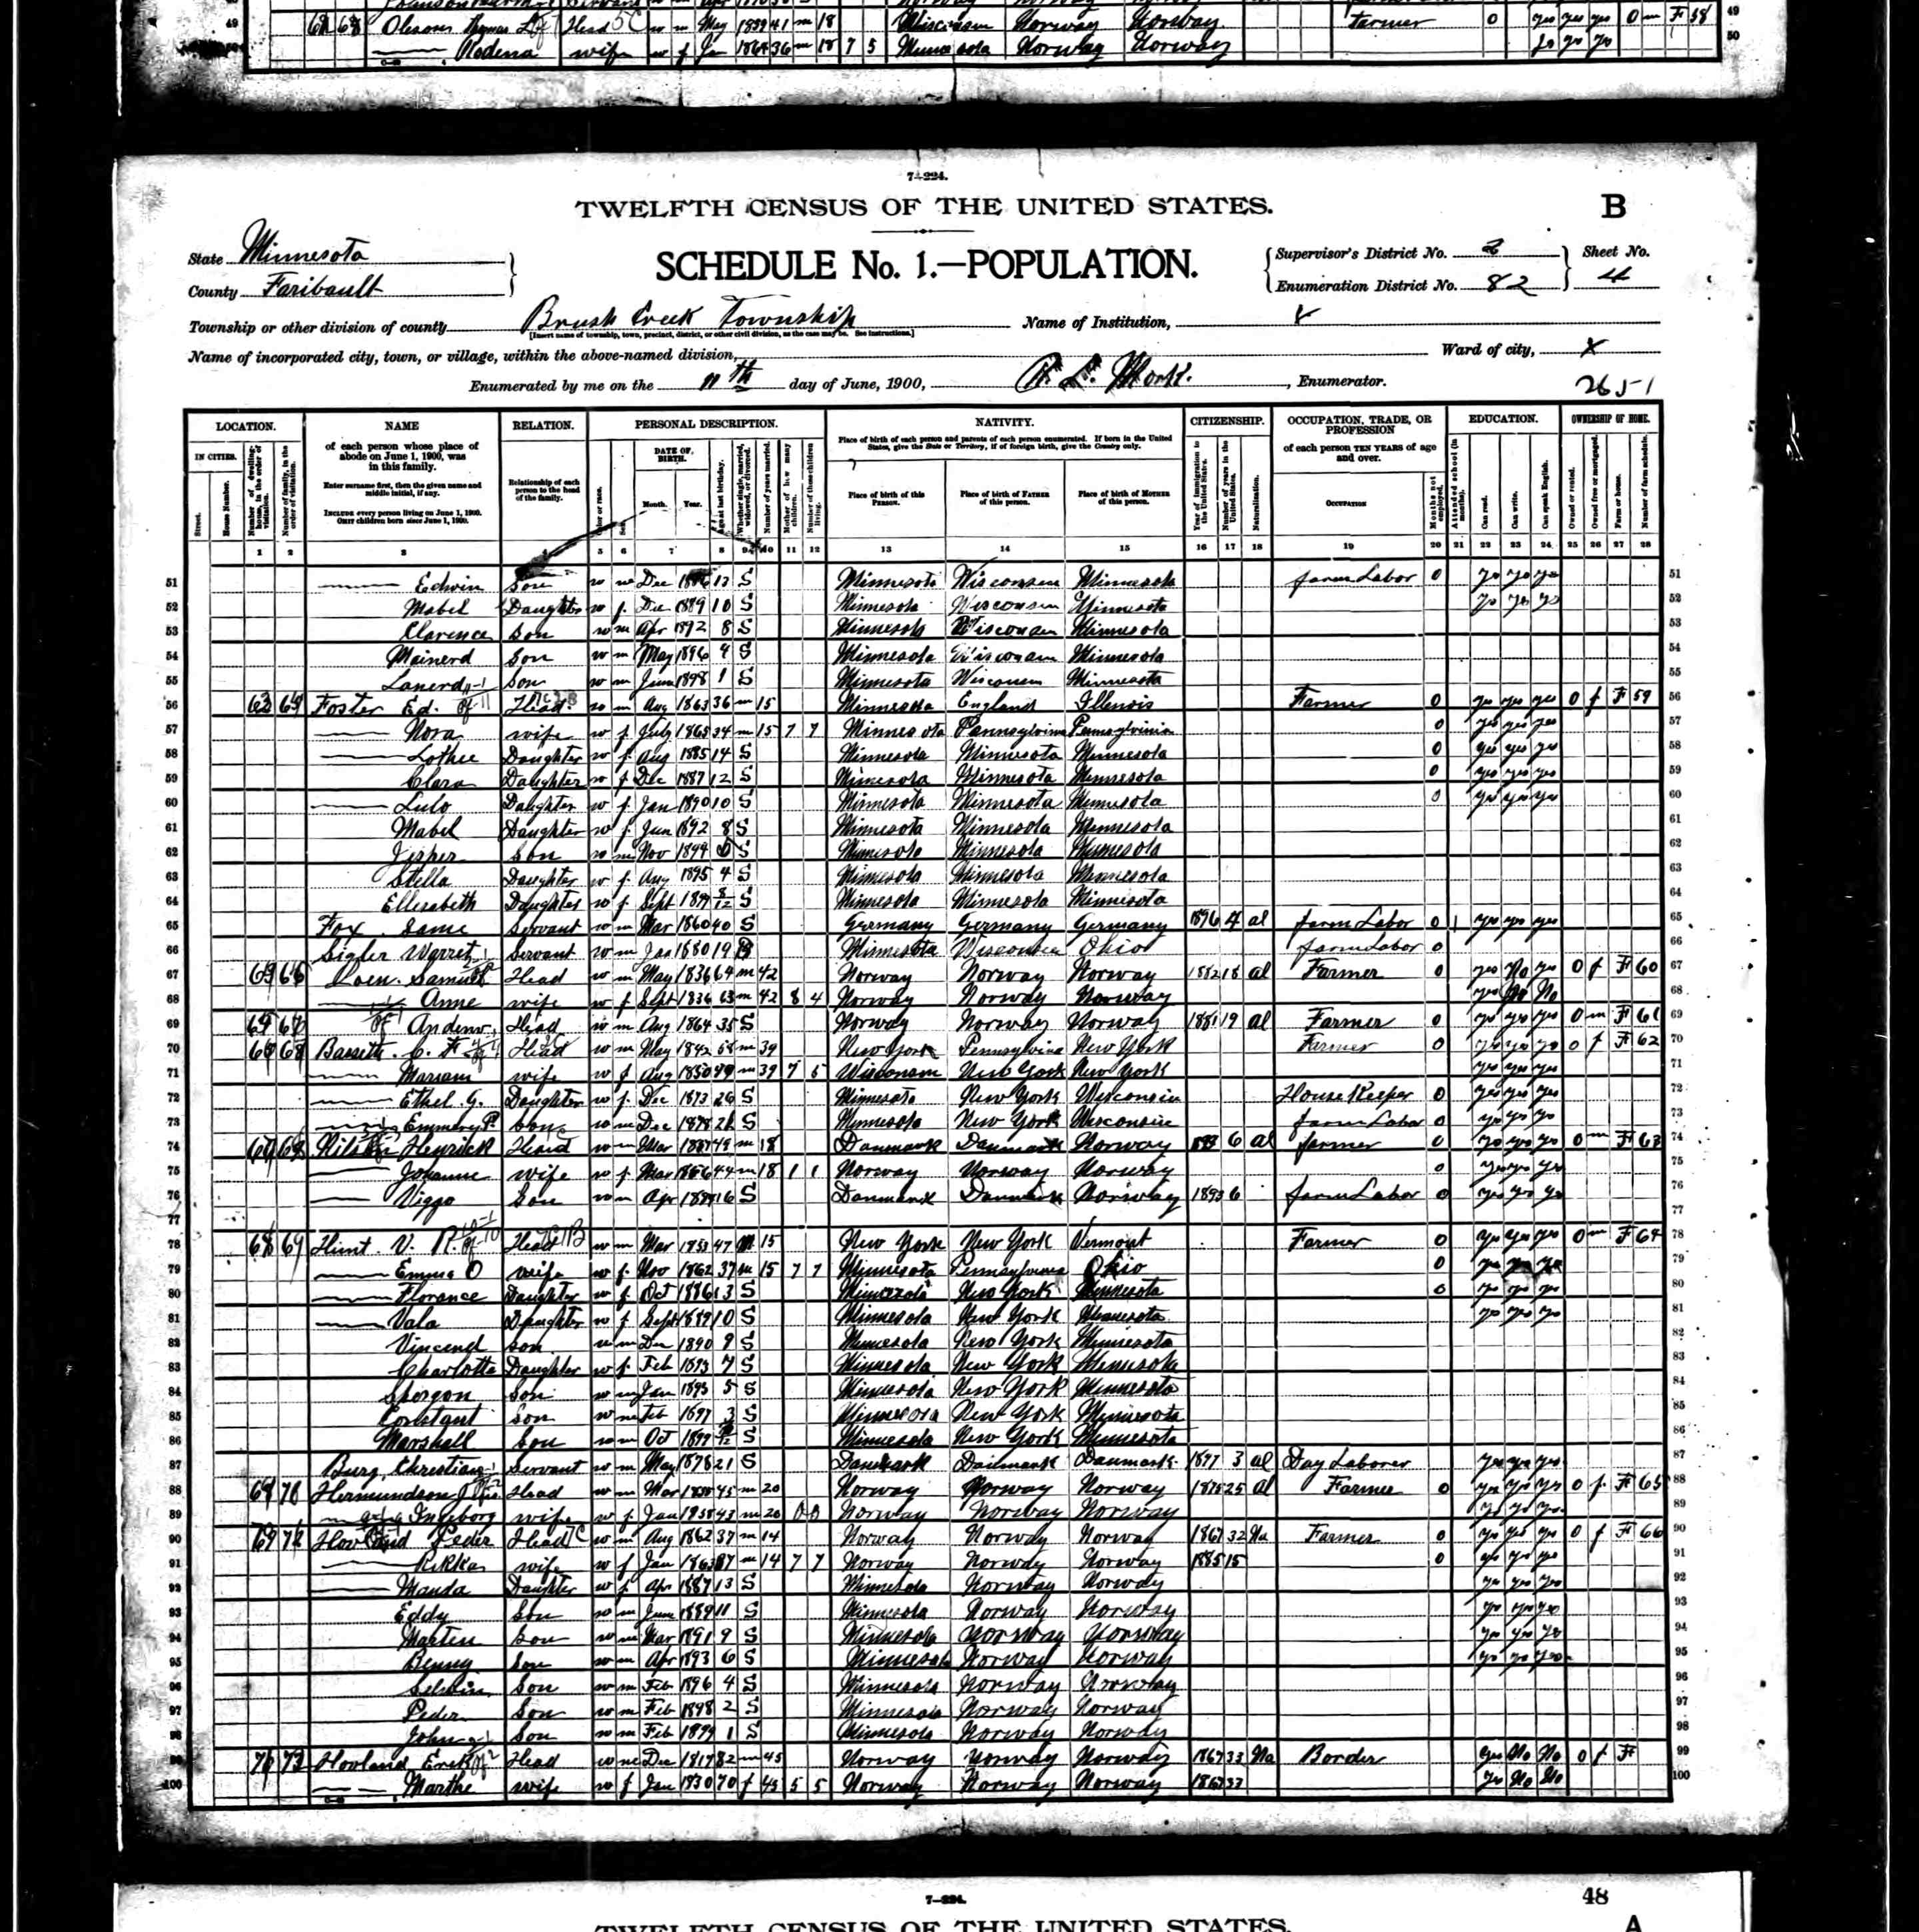 49 Oleson Thomas L Head w m May 1859 41 m 18 Wisconsin Norway Norway Farmer 0 yes yes yes 0 m F 58 49
Wife w f Jan 1864 36 m 18 7 5 Minnesota Norway Norway yes yes 50
7—224.
TWELFTH CENSUS OF THE UNITED STATES.
B
State Minnesota
County Faribault
SCHEDULE No. 1.—POPULATION.
Supervisor's District No. 2
Enumeration District No. 82
Sheet No. 4
Township or other division of county Brush Creek Township
[Insert name of township, town, precinct, district, or other civil division, as the case may be. See instructions.]
Name of Institution, X
Name of incorporated city, town, or village, within the above-named division,
Ward of city, X
Enumerated by me on the 11th day of June, 1900, Enumerator.
2651
LOCATION. NAME RELATION. PERSONAL DESCRIPTION. NATIVITY. CITIZENSHIP. OCCUPATION, TRADE, OR PROFESSION EDUCATION. OWNERSHIP OF HOME.
IN CITIES. Street. House Number. Number of dwelling-house, in the order of visitation. Number of family, in the order of visitation.
of each person whose place of abode on June 1, 1900, was in this family.
Enter surname first, then the given name and middle initial, if any.
INCLUDE every person living on June 1, 1900. OMIT children born since June 1, 1900.
Relationship of each person to the head of the family.
Color or race. Sex. DATE OF BIRTH. Month. Year. Age at last birthday. Whether single, married, widowed, or divorced. Number of years married. Mother of how many children. Number of these children living.
Place of birth of each person and parents of each person enumerated. If born in the United States, give the State or Territory; if of foreign birth, give the Country only.
Place of birth of this PERSON. Place of birth of FATHER of this person. Place of birth of MOTHER of this person.
Year of immigration to the United States. Number of years in the United States. Naturalization.
of each person TEN YEARS of age and over.
OCCUPATION Months not employed. Attended school (in months). Can read. Can write. Can speak English. Owned or rented. Owned free or mortgaged. Farm or house. Number of farm schedule.
1 2 3 4 5 6 7 8 9 10 11 12 13 14 15 16 17 18 19 20 21 22 23 24 25 26 27 28
51 Edwin Son w m Dec 13 S Minnesota Wisconsin Minnesota farm Labor 0 yes yes yes 51
52 Mabel Daughter w f Dec 1889 10 S Minnesota Wisconsin Minnesota yes yes yes 52
53 Clarence Son w m Apr 1892 8 S Minnesota Wisconsin Minnesota 53
54 Mainerd Son w m May 1896 4 S Minnesota Wisconsin Minnesota 54
55 Son w m June 1898 1 S Minnesota Wisconsin Minnesota 55
56 Foster Ed. Head w m Aug 1863 36 m 15 Minnesota England Illinois Farmer 0 yes yes yes 0 f F 59 56
57 Nora wife w f July 1865 34 m 15 7 7 Minnesota Pennsylvina Pennsylvinia 0 yes yes yes 57
58 Daughter w f Aug 1885 14 S Minnesota Minnesota Minnesota 0 yes yes yes 58
59 Clara Daughter w f Dec 1887 12 S Minnesota Minnesota Minnesota 0 yes yes yes 59
60 Lulo Daughter w f Jan 1890 10 S Minnesota Minnesota Minnesota 0 yes yes yes 60
61 Mabel Daughter w f Jun 1892 8 S Minnesota Minnesota Minnesota 61
62 Son w m Nov S Minnesota Minnesota Minnesota 62
63 Stella Daughter w f Aug 1895 4 S Minnesota Minnesota Minnesota 63
64 Ellesabeth Daughter w f Sept 1899 8/12 S Minnesota Minnesota Minnesota 64
65 Fox Servant w m Mar 1860 40 S Germany Germany Germany 1896 4 al farm Labor 0 1 yes yes yes 65
66 Sigler Servant w m Jan 1880 19 Minnesota Wisconsin Ohio farm Labor 0 66
67 Samuel Head w m May 1836 64 m 42 Norway Norway Norway 1882 18 al Farmer 0 yes No yes 0 f F 60 67
68 Anne wife w f Sept 1836 63 m 42 8 4 Norway Norway Norway yes No No 68
69 Andenw. Head w m Aug 1864 35 S Norway Norway Norway 1881 19 al Farmer 0 yes yes yes 0 m F 61 69
70 Bassett C. F Head w m May 1842 58 m 39 New York Pennsylvina New York Farmer 0 yes yes yes 0 f F 62 70
71 Mariam wife w f Aug 1850 49 m 39 7 5 Wisconsin New York New York yes yes yes 71
72 Ethel G. Daughter w f Dec 1873 26 S Minnesota New York Wisconsin House Keeper 0 yes yes yes 72
73 Emmery P. Son w m Dec 1878 21 S Minnesota New York Wisconsin farm Labor 0 yes yes yes 73
74 Henrick Head w m Mar m 18 Danmark Danmark Norway 6 al farmer 0 yes yes yes 0 m F 63 74
75 Johanne wife w f Mar 1856 44 m 18 1 1 Norway Norway Norway 0 yes yes yes 75
76 Viggo Son w m Apr 16 S Danmark Danmark Norway 1893 6 farm Labor 0 yes yes yes 76
77 77
78 Hunt V. R. Head w m Mar 1853 47 m 15 New York New York Vermont Farmer 0 yes yes yes 0 m F 64 78
79 Emma O wife w f Nov 1862 37 m 15 7 7 Minnesota Pennsylvania Ohio 0 yes yes yes 79
80 Florance Daughter w f Oct 1886 13 S Minnesota New York Minnesota 0 yes yes yes 80
81 Vala Daughter w f Sept 1889 10 S Minnesota New York Minnesota yes yes yes 81
82 Vincend son w m Dec 1890 9 S Minnesota New York Minnesota 82
83 Charlotta Daughter w f Feb 1893 7 S Minnesota New York Minnesota 83
84 Son w m Jan 1895 5 S Minnesota New York Minnesota 84
85 Constant Son w m Feb 1897 3 S Minnesota New York Minnesota 85
86 Marshall Son w m Oct 1899 S Minnesota New York Minnesota 86
87 Burg, Christian Servant w m May 1878 21 S Danmark Danmark Danmark 1897 3 al Day Laborer yes yes yes 87
88 Hermundson Head w m Mar 1855 45 m 20 Norway Norway Norway 1875 25 al Farmer 0 yes yes yes 0 f F 65 88
89 Ingeborg wife w f Jan 43 m 20 0 0 Norway Norway Norway yes yes yes 89
90 Hovland Peder Head w m Aug 1862 37 m 14 Norway Norway Norway 1867 32 Na Farmer 0 yes yes yes 0 f F 66 90
91 Rikka wife w f Jan 1863 37 m 14 7 7 Norway Norway Norway 1885 15 0 yes yes yes 91
92 Manda Daughter w f Apr 1887 13 S Minnesota Norway Norway yes yes yes 92
93 Eddy Son w m June 1889 11 S Minnesota Norway Norway yes yes yes 93
94 Marten Son w m Mar 1891 9 S Minnesota Norway Norway yes yes yes 94
95 Benny Son w m Apr 1893 6 S Minnesota Norway Norway yes yes yes 95
96 Selvin Son w m Feb 1896 4 S Minnesota Norway Norway 96
97 Peder Son w m Feb 1898 2 S Minnesota Norway Norway 97
98 John Son w m Feb 1899 1 S Minnesota Norway Norway 98
99 Hovland Erick Head w m Dec 1817 82 m 45 Norway Norway Norway 1867 33 Na Border yes No No 0 f F 99
100 Marthe wife w f Jan 1830 70 f 45 5 5 Norway Norway Norway 1867 33 yes No No 100
7—224.
48
TWELFTH CENSUS OF THE UNITED STATES.
A